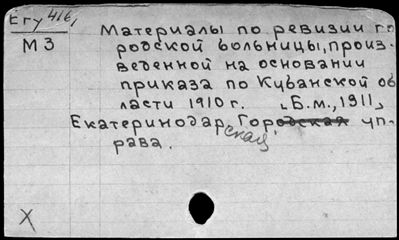 Егу 416,
М3
Материалы по ревизии го
родской больницы, произ-
веденной на основании
приказа по Кубанской об
ласти 1910 г. [Б.м., 1911]
Екатеринодар. Городская уп-
ская
рава.
X